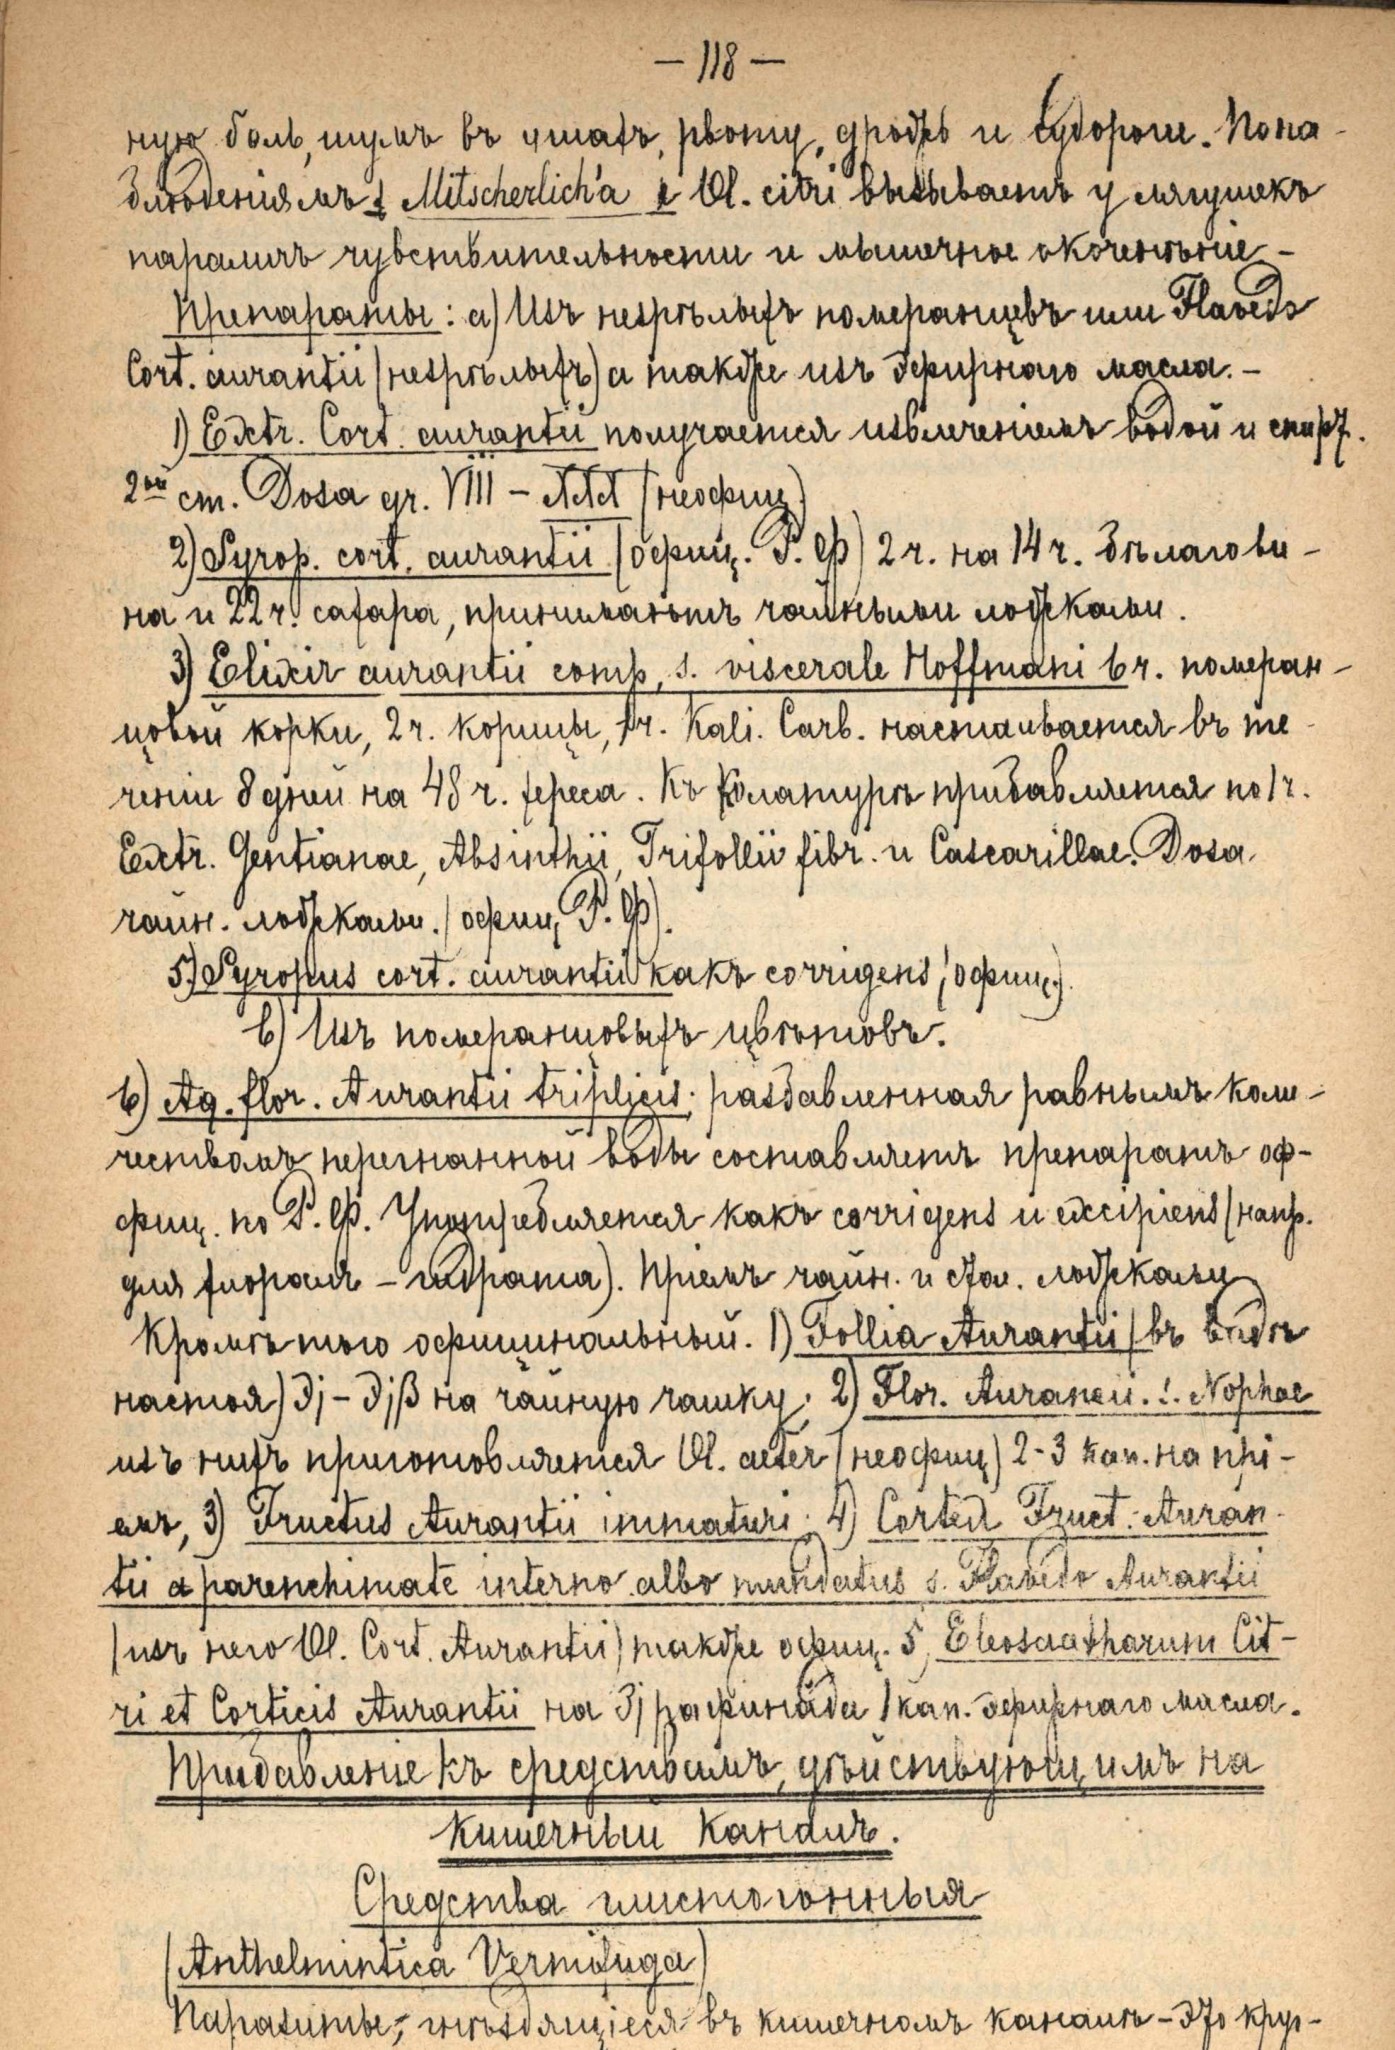 — 118 —
ную боль, шумъ въ ушахъ, рвоту, дрожь и судороги. По на-
блюденіямъ Mitscherlich'a Ol. citri вызываетъ у лягушекъ
параличъ чувствительности и мышечное окоченѣніе –
Препараты: а) Изъ незрѣлыхъ померанцевъ или Flavedo
Cort. aurantii (незрѣлыхъ) а также изъ эфирнаго масла. –
1) Extr. Cort. aurantii получается извлеченіемъ водой и спирт.
2ой ст. Dosa gr. VIII – XXX (неофиц)
2) Syrop. cort. aurantii (офиц. Р. Ф) 2 ч. на 14 ч. бѣлаго ви-
на и 22 ч. сахара, принимаютъ чайными ложками.
3) Elixir aurantii comp, s. viscerale Hoffmani 6 ч. померан-
цовой корки, 2 ч. корицы, 1 ч. Kali. Carb. настаивается въ те-
ченіи 8 дней на 48 ч. хереса. Къ колатурѣ прибавляется по 1 ч.
Extr. Gentianae, Absinthii, Trifolii fibr. и Cascarillae. Dosa
чайн. ложками. (офиц, Р. Ф).
5) Syropus cort. aurantii какъ corrigens (офиц.)
b) Изъ померанцовыхъ цвѣтовъ.
6) Aq. flor. Aurantii triplicis; разбавленная равнымъ коли-
чествомъ перегнанной воды составляетъ препаратъ оф-
фиц. по Р. Ф. Употребляется какъ corrigens и excipiens (напр.
для хлоралъ – гидрата). Пріемъ чайн. и стол. ложками
Кромѣ того официнальный. 1) Follia Aurantii (въ видѣ
настоя) Ʒj – Ʒjβ на чайную чашку; 2) Flor. Aurancii. s. Naphae
изъ нихъ приготовляется Ol. aeter (неофиц) 2-3 кап. на прі-
емъ, 3) Fructus Aurantii immaturi; 4) Cortex Fruct. Auran-
tii a parenchimate interno albo mundatus s. Flavedo Aurantii
(изъ него Ol. Cort. Aurantii) также офиц. 5, Eleosaatharum Cit-
ri et Corticis Aurantii на Ʒj рафинада 1 кап. эфирнаго масла.
Прибавленіе къ средствамъ, дѣйствующимъ на
кишечный каналъ.
Средства глистогонныя
(Anthelmintica Vermifuga)
Паразиты, гнѣздящіеся въ кишечномъ каналѣ – это круг-